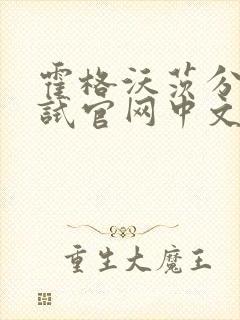 霍格沃茨分
试官网中文
重生大魔王